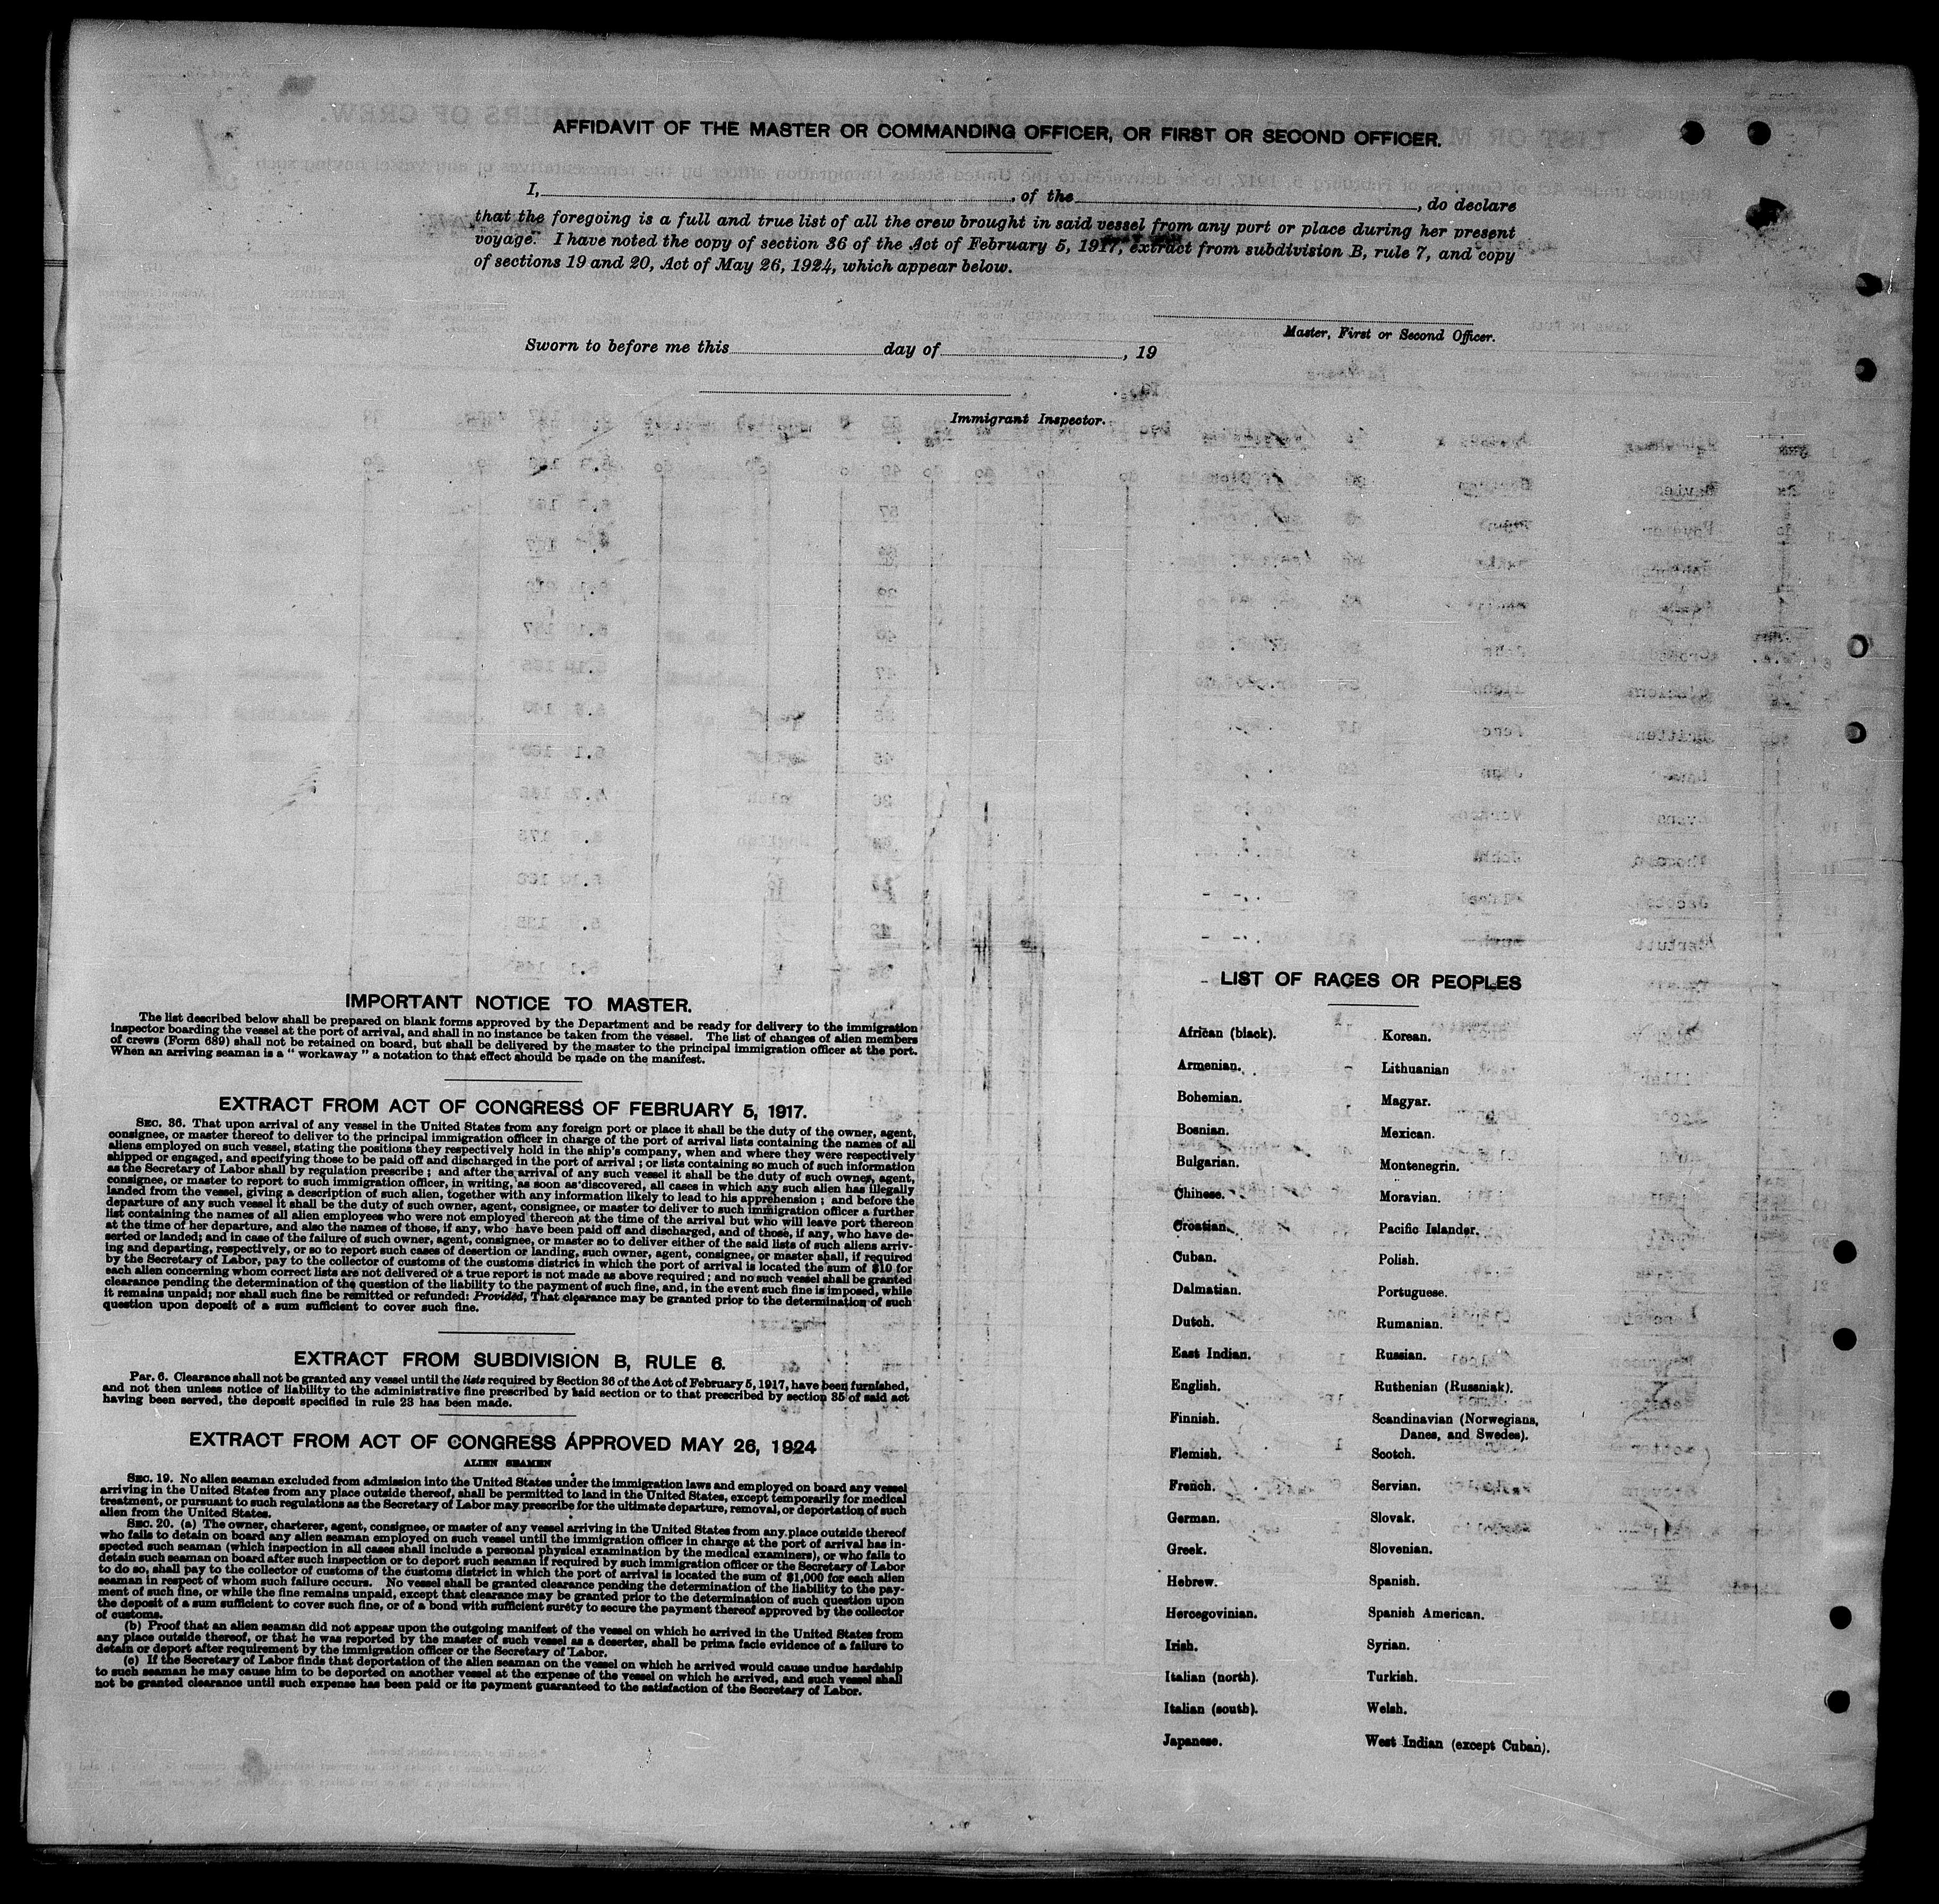 AFFIDAVIT OF THE MASTER OR COMMANDING OFFICER, OR FIRST OR SECOND OFFICER.
I, , of the , do declare
that the foregoing is a full and true list of all the crew brought in said vessel from any port or place during her present
voyage. I have noted the copy of section 36 of the Act of February 5, 1917, extract from subdivision B, rule 7, and copy
of sections 19 and 20, Act of May 26, 1924, which appear below.
Master, First or Second Officer.
Sworn to before me this day of , 19
Immigrant Inspector.
IMPORTANT NOTICE TO MASTER.
The list described below shall be prepared on blank forms approved by the Department and be ready for delivery to the immigration
inspector boarding the vessel at the port of arrival, and shall in no instance be taken from the vessel. The list of changes of alien members
of crews (Form 689) shall not be retained on board, but shall be delivered by the master to the principal immigration officer at the port.
When an arriving seaman is a " workaway " a notation to that effect should be made on the manifest.
EXTRACT FROM ACT OF CONGRESS OF FEBRUARY 5, 1917.
SEC. 36. That upon arrival of any vessel in the United States from any foreign port or place it shall be the duty of the owner, agent,
consignee, or master thereof to deliver to the principal immigration officer in charge of the port of arrival lists containing the names of all
aliens employed on such vessel, stating the positions they respectively hold in the ship's company, when and where they were respectively
shipped or engaged, and specifying those to be paid off and discharged in the port of arrival ; or lists containing so much of such information
as the Secretary of Labor shall by regulation prescribe ; and after the arrival of any such vessel it shall be the duty of such owner, agent,
consignee, or master to report to such immigration officer, in writing, as soon as discovered, all cases in which any such alien has illegally
landed from the vessel, giving a description of such alien, together with any information likely to lead to his apprehension ; and before the
departure of any such vessel it shall be the duty of such owner, agent, consignee, or master to deliver to such immigration officer a further
list containing the names of all alien employees who were not employed thereon at the time of the arrival but who will leave port thereon
at the time of her departure, and also the names of those, if any, who have been paid off and discharged, and of those, if any, who have de-
serted or landed; and in case of the failure of such owner, agent, consignee, or master so to deliver either of the said lists of such aliens arriv-
ing and departing, respectively, or so to report such cases of desertion or landing, such owner, agent, consignee, or master shall, if required
by the Secretary of Labor, pay to the collector of customs of the customs district in which the port of arrival is located the sum of $10 for
each alien concerning whom correct lists are not delivered or a true report is not made as above required ; and no such vessel shall be granted
clearance pending the determination of the question of the liability to the payment of such fine, and, in the event such fine is imposed, while
it remains unpaid; nor shall such fine be remitted or refunded: Provided, That clearance may be granted prior to the determination of such
question upon deposit of a sum sufficient to cover such fine.
EXTRACT FROM SUBDIVISION B, RULE 6.
PAR. 6. Clearance shall not be granted any vessel until the lists required by Section 36 of the Act of February 5, 1917, have been furnished,
and not then unless notice of liability to the administrative fine prescribed by said section or to that prescribed by section 35 of said act
having been served, the deposit specified in rule 23 has been made.
EXTRACT FROM ACT OF CONGRESS APPROVED MAY 26, 1924
ALIEN SEAMEN
SEC. 19. No alien seaman excluded from admission into the United States under the immigration laws and employed on board any vessel
arriving in the United States from any place outside thereof, shall be permitted to land in the United States, except temporarily for medical
treatment, or pursuant to such regulations as the Secretary of Labor may prescribe for the ultimate departure, removal, or deportation of such
alien from the United States.
SEC. 20. (a) The owner, charterer, agent, consignee, or master of any vessel arriving in the United States from any place outside thereof
who fails to detain on board any alien seaman employed on such vessel until the immigration officer in charge at the port of arrival has in-
spected such seaman (which inspection in all cases shall include a personal physical examination by the medical examiners), or who fails to
detain such seaman on board after such inspection or to deport such seaman if required by such immigration officer or the Secretary of Labor
to do so, shall pay to the collector of customs of the customs district in which the port of arrival is located the sum of $1,000 for each alien
seaman in respect of whom such failure occurs. No vessel shall be granted clearance pending the determination of the liability to the pay-
ment of such fine, or while the fine remains unpaid, except that clearance may be granted prior to the determination of such question upon
the deposit of a sum sufficient to cover such fine, or of a bond with sufficient surety to secure the payment thereof approved by the collector
of customs.
(b) Proof that an alien seaman did not appear upon the outgoing manifest of the vessel on which he arrived in the United States from
any place outside thereof, or that he was reported by the master of such vessel as a deserter, shall be prima facie evidence of a failure to
detain or deport after requirement by the immigration officer or the Secretary of Labor.
(c) If the Secretary of Labor finds that deportation of the alien seaman on the vessel on which he arrived would cause undue hardship
to such seaman he may cause him to be deported on another vessel at the expense of the vessel on which he arrived, and such vessel shall
not be granted clearance until such expense has been paid or its payment guaranteed to the satisfaction of the Secretary of Labor.
LIST OF RACES OR PEOPLES
African (black).
Armenian.
Bohemian.
Bosnian.
Bulgarian.
Chinese.
Croatian.
Cuban.
Dalmatian.
Dutch.
East Indian.
English.
Finnish.
Flemish.
French.
German.
Greek.
Hebrew.
Hercegovinian.
Irish.
Italian (north).
Italian (south).
Japanese.
Korean.
Lithuanian
Magyar.
Mexican.
Montenegrin.
Moravian.
Pacific Islander.
Polish.
Portuguese.
Rumanian.
Russian.
Ruthenian (Russniak).
Scandinavian (Norwegians,
Danes, and Swedes).
Scotch.
Servian.
Slovak.
Slovenian.
Spanish.
Spanish American.
Syrian.
Turkish.
Welsh.
West Indian (except Cuban).